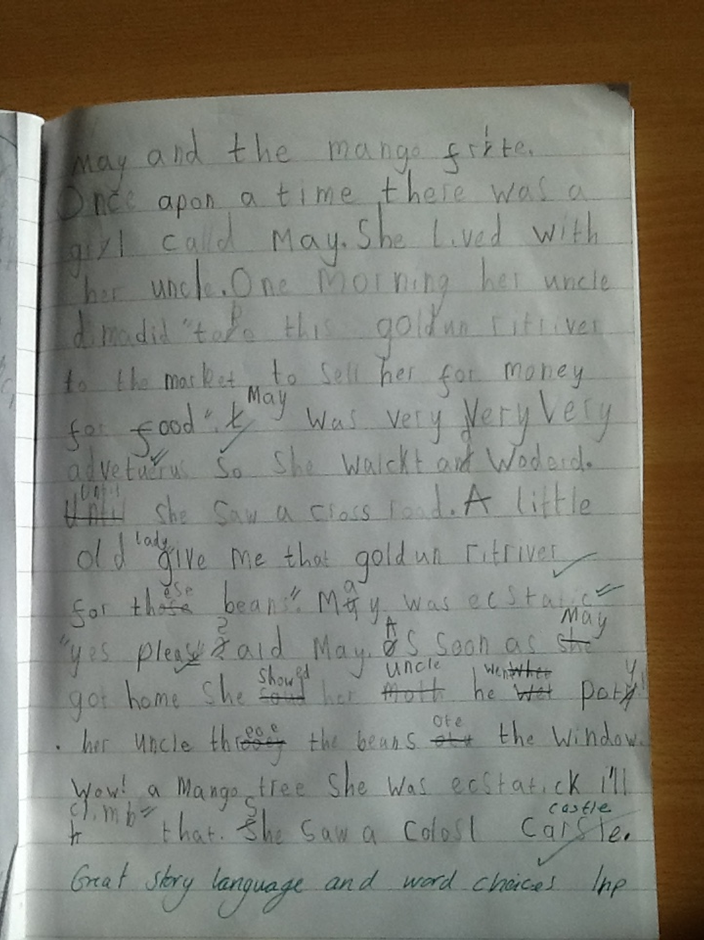 may and the mango frite.
Once apon a time there was a
girl calld May. She Lived with
her uncle. One Morning her uncle
dimadid "take this goldun ritriver
to the market to sell her for money
for food". May was very very very
adveturus so she walckt and Woderd.
Until she saw a cross road. A little
old lady give me that goldun ritriver
for these beans". May was ecstatic
"yes please said May. As soon as May
got home she showed her uncle he went poty
her uncle throo the beans ote the window.
Wow! a Mango tree she was ecstatick i'll
climb that. She saw a Colosl castle Carstle.
Great story language and word choices